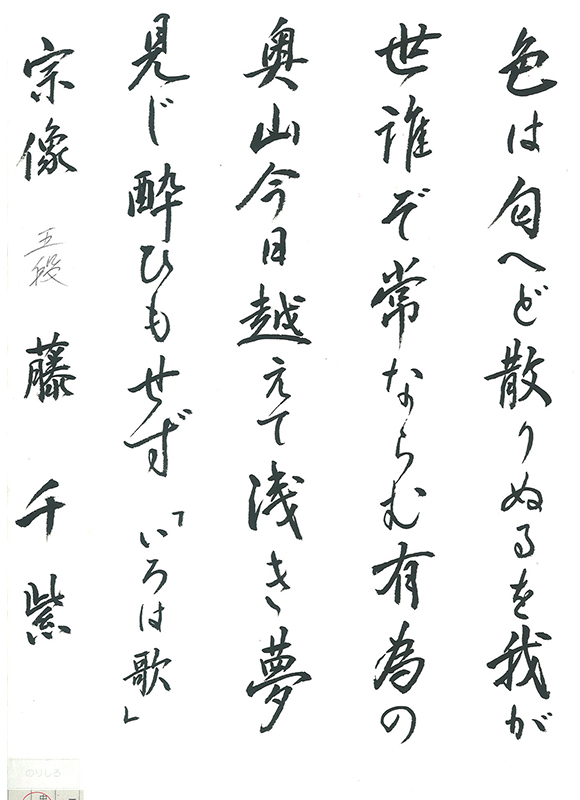 色は匂へど散りぬるを我が
世誰ぞ常ならむ有為の
奥山今日越えて浅き夢
見じ酔ひもせず「いろは歌」
宗像 五段 藤 千紫
のりしろ